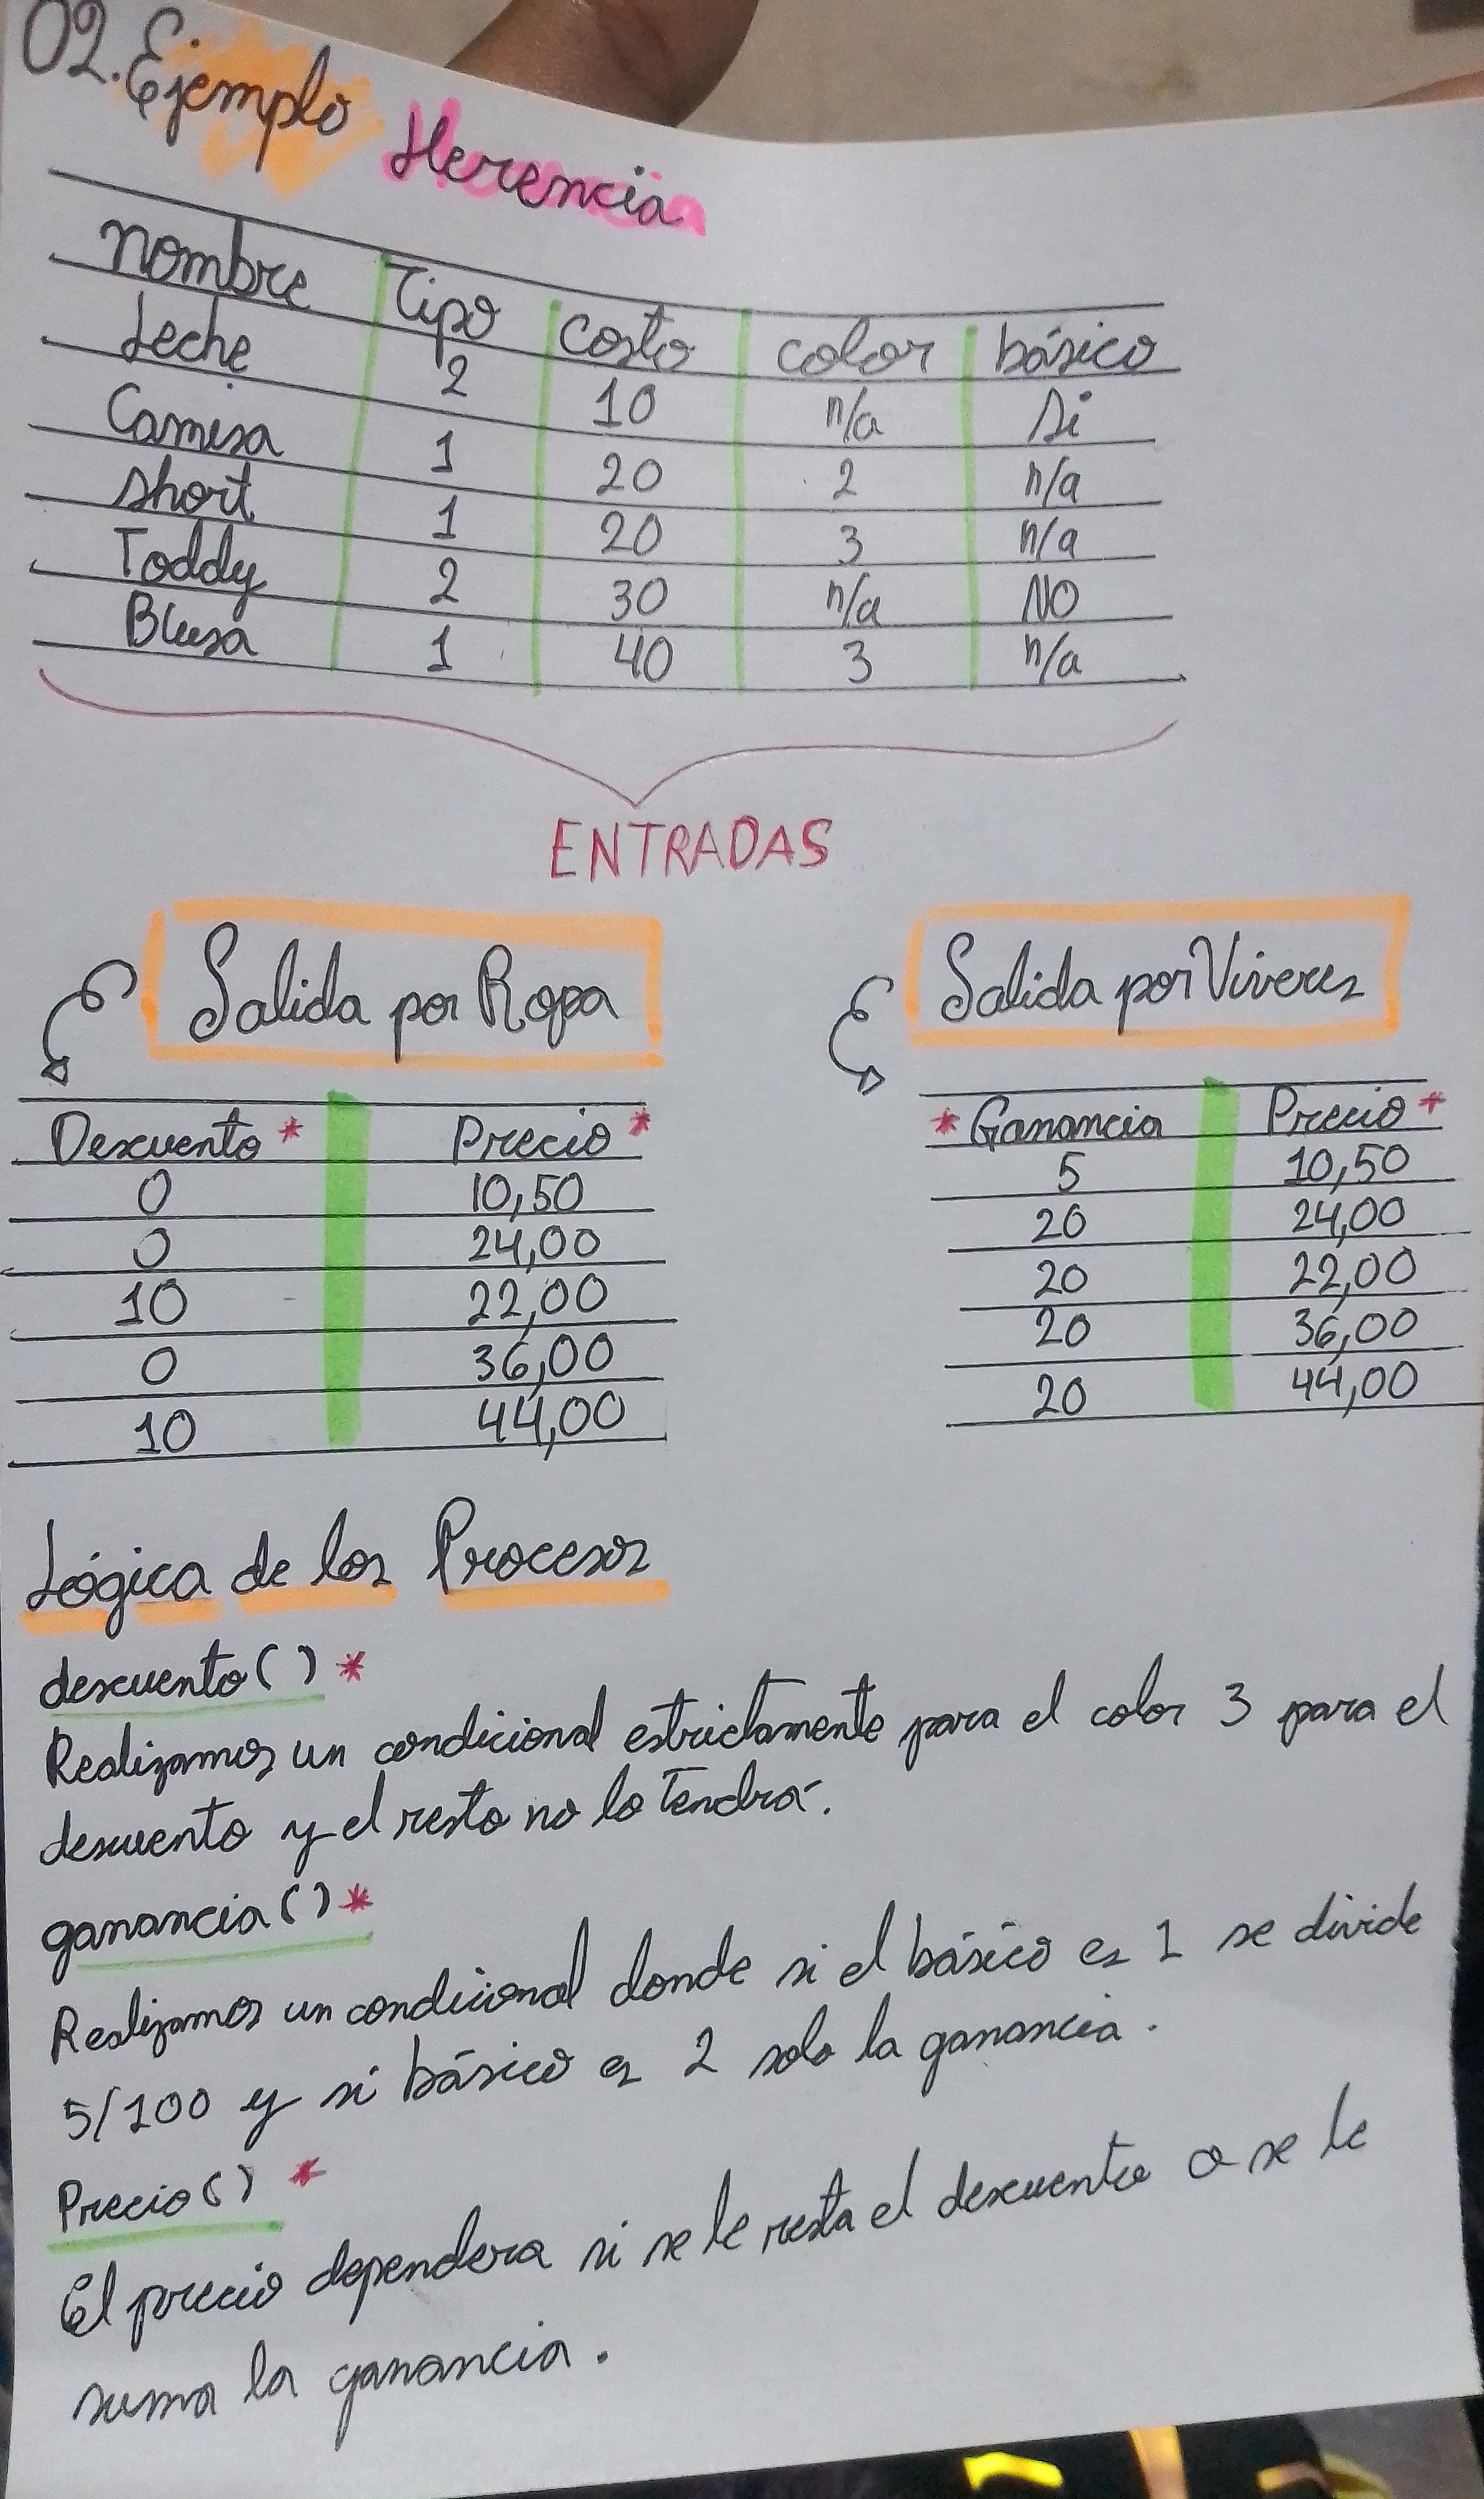 02. Ejemplo Herencia
nombre Tipo costo color básico
Leche 2 10 n/a Si
Camisa 1 20 2 n/a
short 1 20 3 n/a
Toddy 2 30 n/a NO
Blusa 1 40 3 n/a
ENTRADAS
Salida por Ropa
Descuento * Precio *
0 10,50
0 24,00
10 22,00
0 36,00
10 44,00
Salida por Viveres
* Ganancia Precio *
5 10,50
20 24,00
20 22,00
20 36,00
20 44,00
Lógica de los Procesos
descuento ( ) *
Realizamos un condicional estrictamente para el color 3 para el
descuento y el resto no lo Tendrá.
ganancia ( ) *
Realizamos un condicional donde si el básico es 1 se divide
5/100 y si básico es 2 solo la ganancia.
Precio ( ) *
El precio dependera si se le resta el descuento o se le
suma la ganancia.